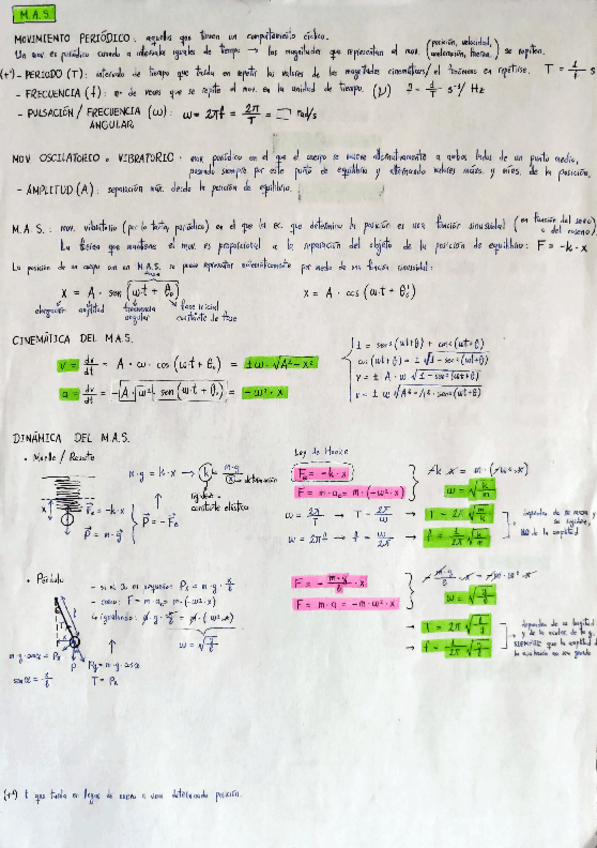 M.A.S.
MOVIMIENTO PERIÓDICO: aquellos que tienen un comportamiento cíclico.
Un mov. es periódico cuando a intervalos iguales de tiempo → las magnitudes que representan el mov. (posición, velocidad, aceleración, fuerza...) se repiten.
(+¹) - PERIODO (T): intervalo de tiempo que tarda en repetir los valores de las magnitudes cinemáticas/ el fenómeno en repetirse. T = 1/f s
- FRECUENCIA (f): nº de veces que se repite el mov. en la unidad de tiempo. (ν) f = 1/T s⁻¹/ Hz
- PULSACIÓN / FRECUENCIA ANGULAR (ω): ω = 2πf = 2π/T = □ rad/s
MOV OSCILATORIO o VIBRATORIO: mov. periódico en el que el cuerpo se mueve alternativamente a ambos lados de un punto medio,
pasando siempre por este punto de equilibrio y alternando valores máxs. y míns. de la posición.
- AMPLITUD (A): separación máx. desde la posición de equilibrio.
M.A.S.: mov. vibratorio (por lo tanto, periódico) en el que la ec. que determina la posición es una función sinusoidal (en función del seno o del coseno).
La fuerza que mantiene el mov. es proporcional a la separación del objeto de la posición de equilibrio: F = -k·x
La posición de un cuerpo con un M.A.S. se puede representar matemáticamente por medio de una función sinusoidal:
x = A · sen (ω·t + θ₀)
x = A · cos (ω·t + θ₀')
elongación amplitud frecuencia angular fase inicial constante de fase
CINEMÁTICA DEL M.A.S.
v = dx/dt = A · ω · cos (ω·t + θ₀) = ±ω·√A²-x²
a = dv/dt = -A·ω²· sen (ω·t + θ₀) = -ω²·x
1 = sen²(ωt+θ) + cos²(ωt+θ)
cos (ωt+θ) = ±√1-sen²(ωt+θ)
v = ± A·ω √1-sen²(ωt+θ)
v = ± ω √A²-A²·sen²(ωt+θ)
DINÁMICA DEL M.A.S.
• Muelle / Resorte
m·g = k·x → k = m·g/x → deformación
constante elástica
x
F⃗e = -k·x
P⃗ = m·g⃗
P⃗ = -F⃗e
Ley de Hooke
Fe = -k·x
F = m·a = m·(-ω²·x)
-k·x = m·(-ω²·x)
ω = √k/m
ω = 2π/T → T = 2π/ω → T = 2π √m/k
ω = 2πf → f = ω/2π → f = 1/2π √k/m
• Péndulo
- si el α es pequeño: Px = m·g·x/l
- como: F = m·a = m·(-ω²·x)
ω = √g/l
m·g·cosα = Py
sen α = x/l
P
Py = m·g·cosα
F = - m·g/l · x
F = m·a = -m·ω²·x
ω = √g/l
→ T = 2π √l/g
→ f = 1/2π √g/l
(+¹) t que tarda en llegar de nuevo a una determinada posición.